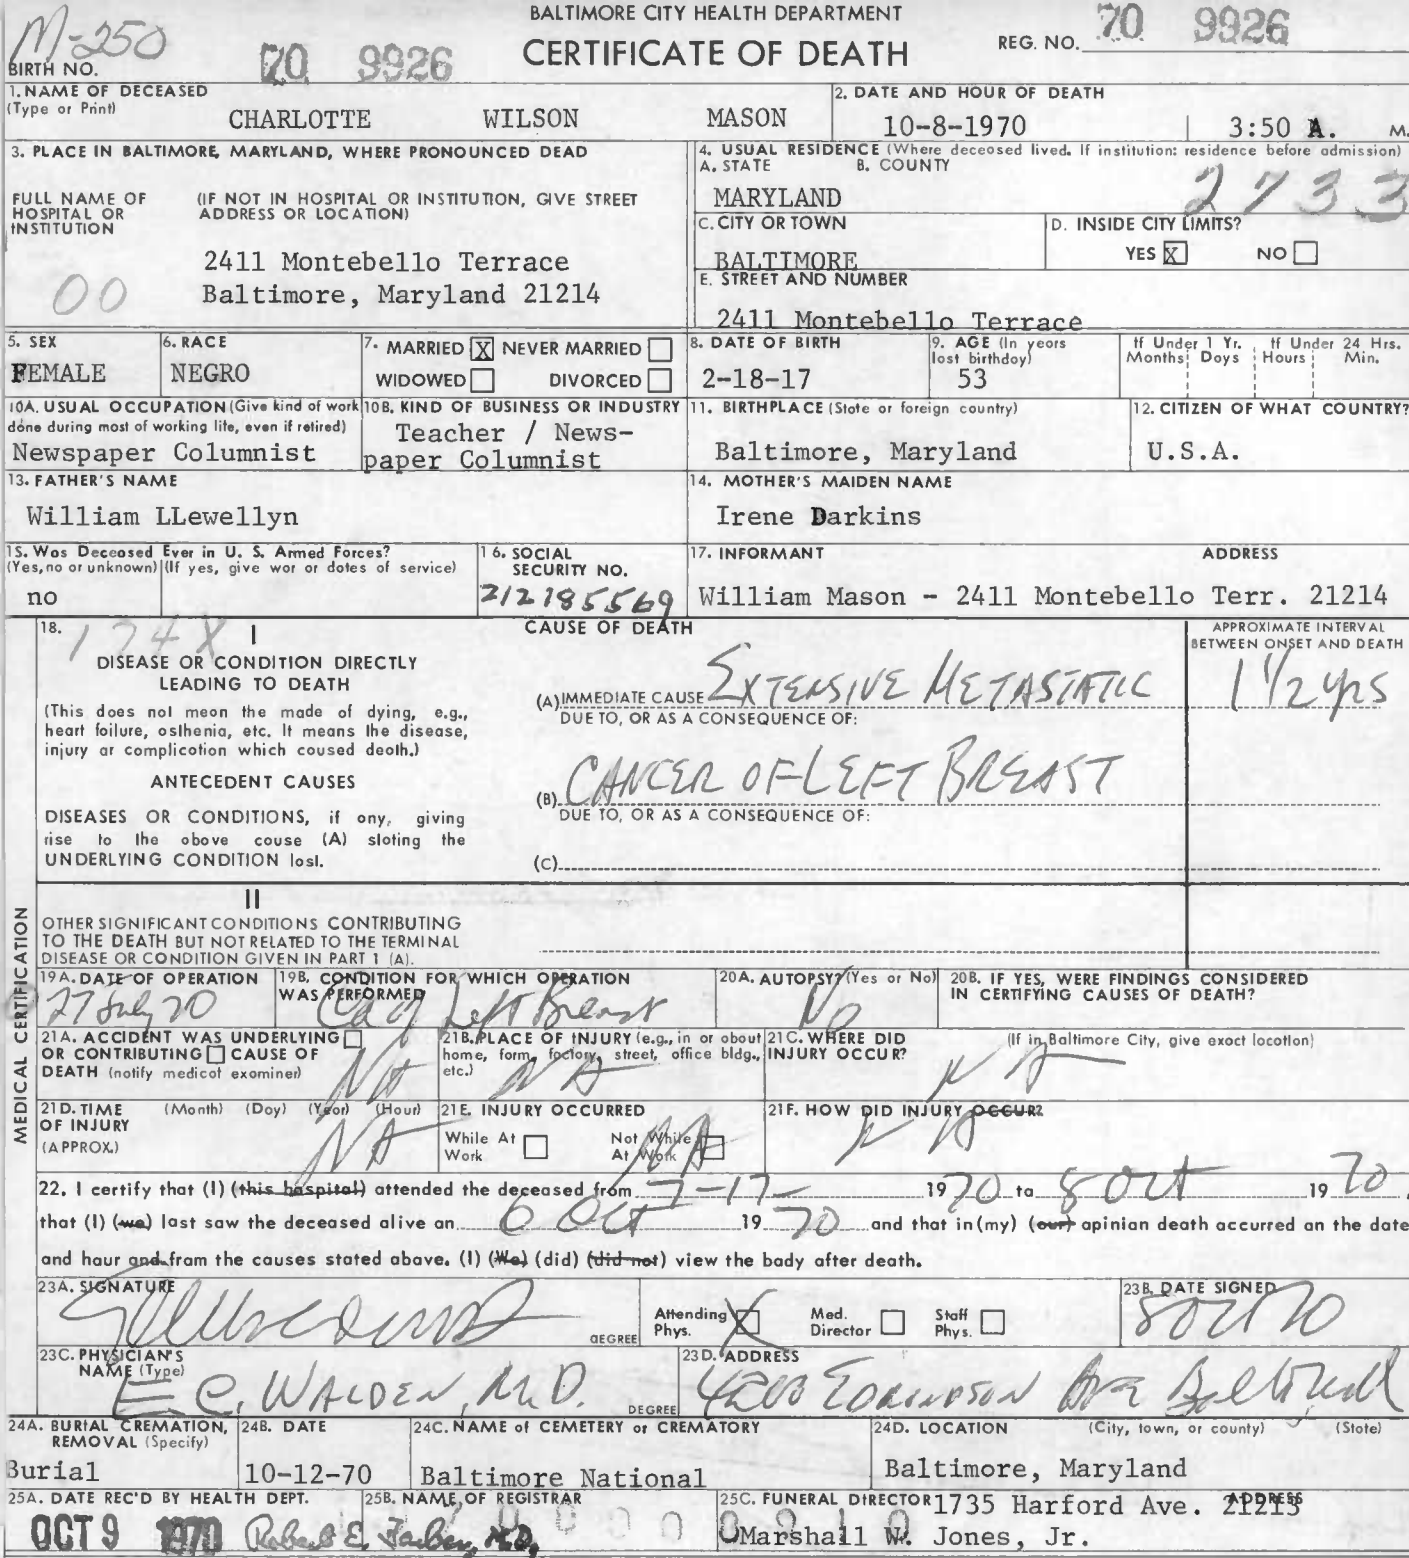 BALTIMORE CITY HEALTH DEPARTMENT
CERTIFICATE OF DEATH
M-250
BIRTH NO.
70 9926
REG. NO. 70 9926
1. NAME OF DECEASED
(Type or Print)
CHARLOTTE WILSON MASON
2. DATE AND HOUR OF DEATH
10-8-1970 3:50 A. M.
3. PLACE IN BALTIMORE, MARYLAND, WHERE PRONOUNCED DEAD
FULL NAME OF HOSPITAL OR INSTITUTION
(IF NOT IN HOSPITAL OR INSTITUTION, GIVE STREET ADDRESS OR LOCATION)
00
2411 Montebello Terrace
Baltimore, Maryland 21214
4. USUAL RESIDENCE (Where deceosed lived. If institution: residence before admission)
A. STATE B. COUNTY
MARYLAND
2733
C. CITY OR TOWN
BALTIMORE
D. INSIDE CITY LIMITS?
YES X NO
E. STREET AND NUMBER
2411 Montebello Terrace
5. SEX
FEMALE
6. RACE
NEGRO
7. MARRIED X NEVER MARRIED
WIDOWED DIVORCED
8. DATE OF BIRTH
2-18-17
9. AGE (In years lost birthdoy)
53
If Under 1 Yr. If Under 24 Hrs.
Months Doys Hours Min.
10A. USUAL OCCUPATION (Give kind of work done during most of working life, even if retired)
Newspaper Columnist
10B. KIND OF BUSINESS OR INDUSTRY
Teacher / News-
paper Columnist
11. BIRTHPLACE (Stote or foreign country)
Baltimore, Maryland
12. CITIZEN OF WHAT COUNTRY?
U.S.A.
13. FATHER'S NAME
William LLewellyn
14. MOTHER'S MAIDEN NAME
Irene Darkins
15. Was Deceased Ever in U. S. Armed Forces?
(Yes, no or unknown) (If yes, give wor or dotes of service)
no
16. SOCIAL SECURITY NO.
212185569
17. INFORMANT ADDRESS
William Mason - 2411 Montebello Terr. 21214
MEDICAL CERTIFICATION
18. 174X I
DISEASE OR CONDITION DIRECTLY
LEADING TO DEATH
(This does not meon the mode of dying, e.g.,
heart foilure, osthenia, etc. It means the disease,
injury or complicotion which coused deoth.)
ANTECEDENT CAUSES
DISEASES OR CONDITIONS, if ony, giving
rise to the obove couse (A) stoting the
UNDERLYING CONDITION lost.
CAUSE OF DEATH
APPROXIMATE INTERVAL
BETWEEN ONSET AND DEATH
(A) IMMEDIATE CAUSE EXTENSIVE METASTATIC 1 1/2 yrs
DUE TO, OR AS A CONSEQUENCE OF:
(B) CANCER OF LEFT BREAST
DUE TO, OR AS A CONSEQUENCE OF:
(C)
II
OTHER SIGNIFICANT CONDITIONS CONTRIBUTING
TO THE DEATH BUT NOT RELATED TO THE TERMINAL
DISEASE OR CONDITION GIVEN IN PART 1 (A).
19A. DATE OF OPERATION
27 July 70
19B. CONDITION FOR WHICH OPERATION WAS PERFORMED
Ca of Left Breast
20A. AUTOPSY? (Yes or No)
No
20B. IF YES, WERE FINDINGS CONSIDERED
IN CERTIFYING CAUSES OF DEATH?
21A. ACCIDENT WAS UNDERLYING
OR CONTRIBUTING CAUSE OF
DEATH (notify medicol exominer)
NA
21B. PLACE OF INJURY (e.g., in or obout
home, form, foctory, street, office bldg.,
etc.)
NA
21C. WHERE DID INJURY OCCUR?
(If in Baltimore City, give exoct locotion)
NA
21D. TIME OF INJURY (APPROX.)
(Month) (Doy) (Yeor) (Hour)
NA
21E. INJURY OCCURRED
While At Work Not While At Work
NA
21F. HOW DID INJURY OCCUR?
NA
22. I certify that (I) (this hospital) attended the deceased from 7-17- 1970 to 8 Oct 1970,
that (I) (we) last saw the deceased alive an 6 Oct 1970 and that in (my) (our) apinian death accurred an the date
and haur and fram the causes stated abave. (I) (We) (did) (did not) view the bady after death.
23A. SIGNATURE
DEGREE
Attending Phys. X Med. Director Staff Phys.
23B. DATE SIGNED
8 Oct 70
23C. PHYSICIAN'S NAME (Type)
E.C. WALDEN, M.D.
DEGREE
23D. ADDRESS
4200 EDMONDSON Ave
24A. BURIAL CREMATION, REMOVAL (Specify)
Burial
24B. DATE
10-12-70
24C. NAME of CEMETERY or CREMATORY
Baltimore National
24D. LOCATION (City, town, or county) (Stote)
Baltimore, Maryland
25A. DATE REC'D BY HEALTH DEPT.
OCT 9 1970
25B. NAME OF REGISTRAR
Robert E. Farber, M.D.
25C. FUNERAL DIRECTOR ADDRESS
1735 Harford Ave. 21213
Marshall W. Jones, Jr.